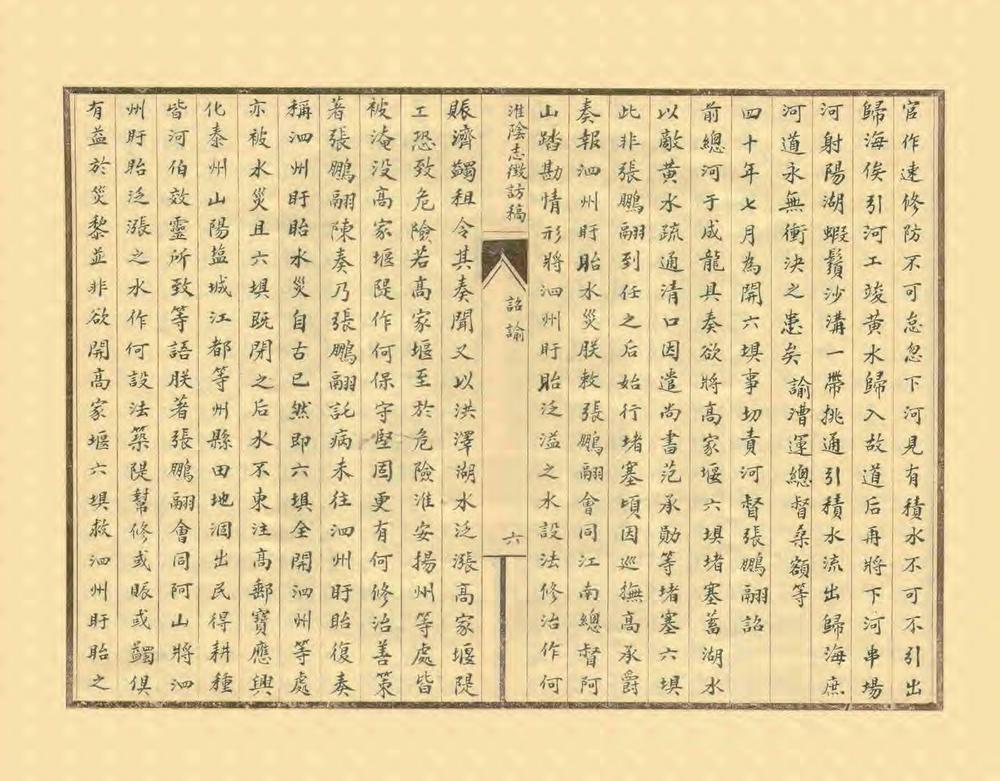 官作速修防不可怠忽下河見有積水不可不引出
歸海俟引河工竣黃水歸入故道后再將下河串場
河射陽湖蝦鬚沙溝一帶挑通引積水流出歸海庶
河道永無衝決之患矣 諭漕運總督桑額等
四十年七月為開六垻事切責河督張鵬翮詔
前總河于成龍具奏欲將高家堰六垻堵塞蓄湖水
以敵黃水疏通清口因遣尚書范承勳等堵塞六垻
此非張鵬翮到任之后始行堵塞頃因巡撫高承爵
奏報泗州盱眙水災朕敕張鵬翮會同江南總督阿
山踏勘情形將泗州盱眙泛溢之水設法修治作何
淮陰志徵訪稿
詔諭
六
賑濟蠲租令其奏聞又以洪澤湖水泛漲高家堰隄
工恐致危險若高家堰至於危險淮安揚州等處皆
被淹沒高家堰隄作何保守堅固更有何修治善策
著張鵬翮陳奏乃張鵬翮託病未往泗州盱眙復奏
稱泗州盱眙水災自古已然即六垻全開泗州等處
亦被水災且六垻既閉之后水不東注高郵寶應興
化泰州山陽塩城江都等州縣田地涸出民得耕種
皆河伯效靈所致等語朕著張鵬翮會同阿山將泗
州盱眙泛漲之水作何設法築隄幫修或賑或蠲俱
有益於災黎並非欲開高家堰六垻救泗州盱眙之